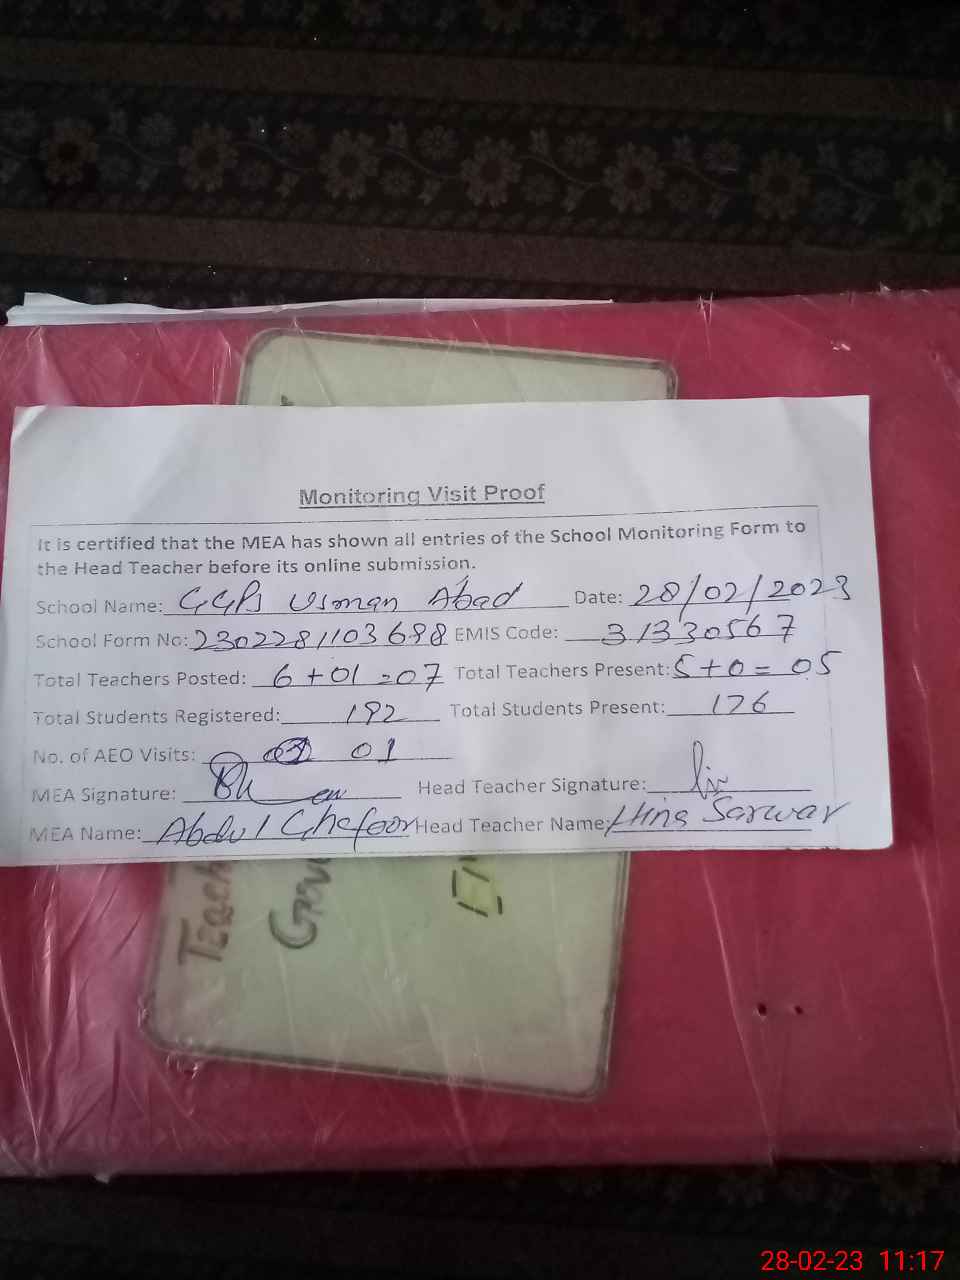 Monitoring Visit Proof
It is certified that the MEA has shown all entries of the School Monitoring Form to
the Head Teacher before its online submission.
School Name: GGPS Usman Abad Date: 28/02/2023
School Form No: 2302281103698 EMIS Code: 31330567
Total Teachers Posted: 6+01=07 Total Teachers Present: 5+0=05
Total Students Registered: 192 Total Students Present: 176
No. of AEO Visits: 01
MEA Signature: Head Teacher Signature:
MEA Name: Abdul Ghafoor Head Teacher Name: Hina Sarwar
Teach
Gov
28-02-23 11:17